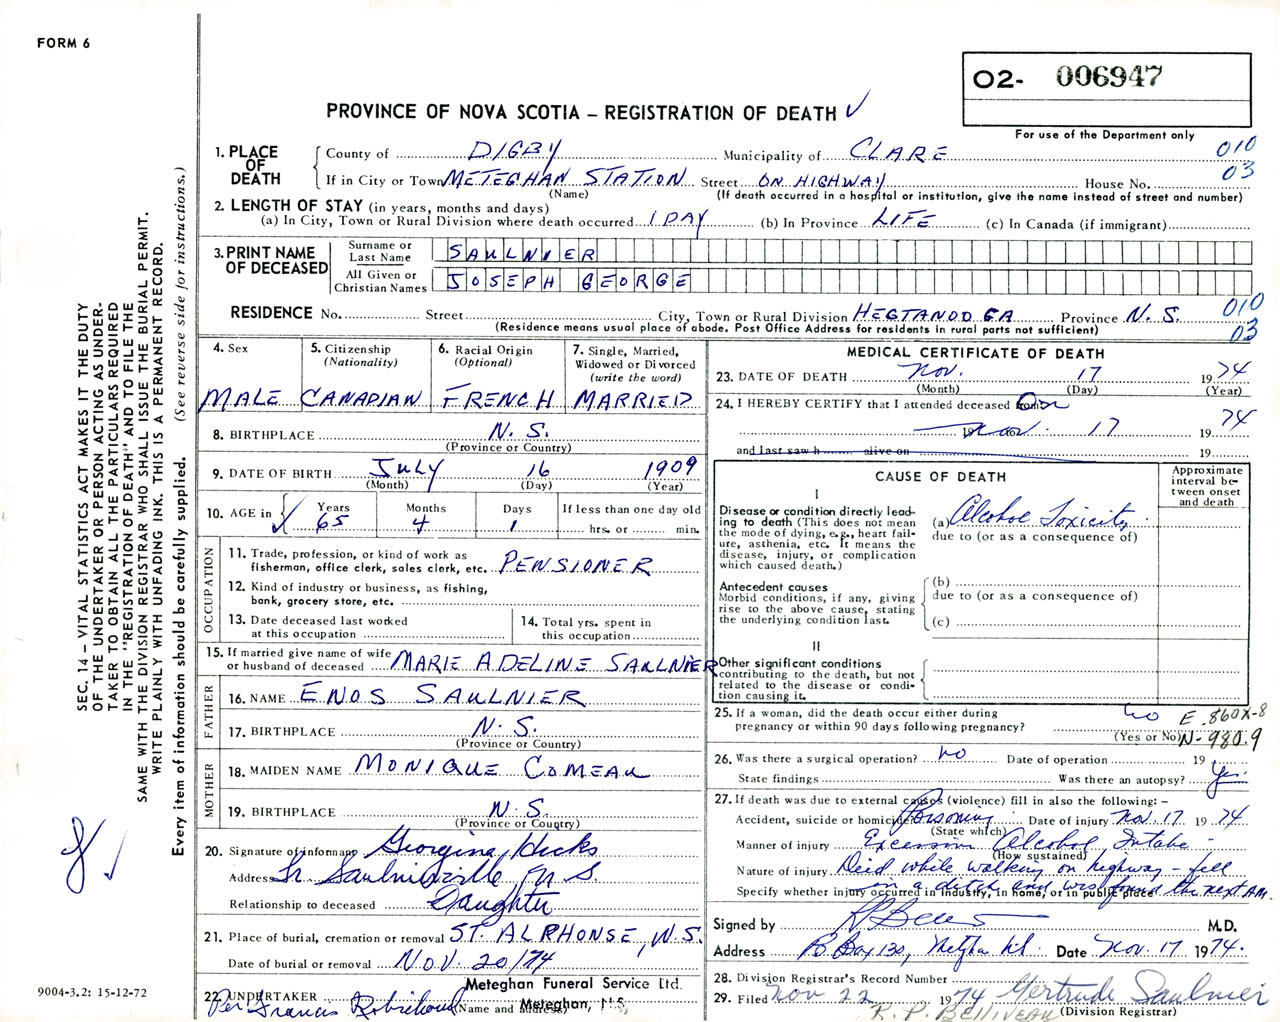 FORM 6
O2- 006947
PROVINCE OF NOVA SCOTIA – REGISTRATION OF DEATH ✓
For use of the Department only
1. PLACE OF DEATH
County of DIGBY Municipality of CLARE 010
If in City or Town METEGHAN STATION Street ON HIGHWAY House No. 03
(Name) (If death occurred in a hospital or institution, give the name instead of street and number)
2. LENGTH OF STAY (in years, months and days)
(a) In City, Town or Rural Division where death occurred 1 DAY (b) In Province LIFE (c) In Canada (if immigrant)
3. PRINT NAME OF DECEASED
Surname or Last Name SAULNIER
All Given or Christian Names JOSEPH GEORGE
RESIDENCE No. Street City, Town or Rural Division Province N.S. 010
(Residence means usual place of abode. Post Office Address for residents in rural parts not sufficient) 03
4. Sex MALE
5. Citizenship (Nationality) CANADIAN
6. Racial Origin (Optional) FRENCH
7. Single, Married, Widowed or Divorced (write the word) MARRIED
8. BIRTHPLACE N.S.
(Province or Country)
9. DATE OF BIRTH July 16 1909
(Month) (Day) (Year)
10. AGE in ✓ Years 65 Months 4 Days 1 If less than one day old hrs. or min.
OCCUPATION
11. Trade, profession, or kind of work as fisherman, office clerk, sales clerk, etc. PENSIONER
12. Kind of industry or business, as fishing, bank, grocery store, etc.
13. Date deceased last worked at this occupation
14. Total yrs. spent in this occupation
15. If married give name of wife or husband of deceased MARIE ADELINE SAULNIER
FATHER
16. NAME ENOS SAULNIER
17. BIRTHPLACE N.S.
(Province or Country)
MOTHER
18. MAIDEN NAME MONIQUE COMEAU
19. BIRTHPLACE N.S.
(Province or Country)
20. Signature of informant Georgina Hicks
Address Saulnierville, N.S.
Relationship to deceased Daughter
21. Place of burial, cremation or removal ST. ALPHONSE, N.S.
Date of burial or removal NOV. 20/74
Meteghan Funeral Service Ltd.
22. UNDERTAKER Per Francis Robichaud Meteghan, N.S.
(Name and address)
MEDICAL CERTIFICATE OF DEATH
23. DATE OF DEATH Nov. 17 1974
(Month) (Day) (Year)
24. I HEREBY CERTIFY that I attended deceased from On
19 Nov. 17 19 74
and last saw h alive on 19
CAUSE OF DEATH
Approximate interval between onset and death
I
Disease or condition directly leading to death (This does not mean the mode of dying, e.g., heart failure, asthenia, etc. It means the disease, injury, or complication which caused death.)
(a) Alcohol Toxicity
due to (or as a consequence of)
Antecedent causes
Morbid conditions, if any, giving rise to the above cause, stating the underlying condition last.
(b)
due to (or as a consequence of)
(c)
II
Other significant conditions contributing to the death, but not related to the disease or condition causing it.
25. If a woman, did the death occur either during pregnancy or within 90 days following pregnancy? no E.860X-8
(Yes or No) N-980.9
26. Was there a surgical operation? no Date of operation 19
State findings Was there an autopsy? Yes
27. If death was due to external causes (violence) fill in also the following: –
Accident, suicide or homicide Poisoning Date of injury Nov. 17 19 74
(State which)
Manner of injury Excessive Alcohol Intake
(How sustained)
Nature of injury Died while walking on highway – fell
Specify whether injury occurred in industry, in home, or in public place in a ditch and was found the next AM.
Signed by M.D.
Address Box 130, Date Nov. 17 1974.
28. Division Registrar's Record Number
29. Filed Nov 22 1974 Gertrude Saulnier
R. P. BELLIVEAU (Division Registrar)
SEC. 14 – VITAL STATISTICS ACT MAKES IT THE DUTY
OF THE UNDERTAKER OR PERSON ACTING AS UNDER-
TAKER TO OBTAIN ALL THE PARTICULARS REQUIRED
IN THE "REGISTRATION OF DEATH" AND TO FILE THE
SAME WITH THE DIVISION REGISTRAR WHO SHALL ISSUE THE BURIAL PERMIT.
WRITE PLAINLY WITH UNFADING INK. THIS IS A PERMANENT RECORD.
Every item of information should be carefully supplied. (See reverse side for instructions.)
9004-3.2: 15-12-72